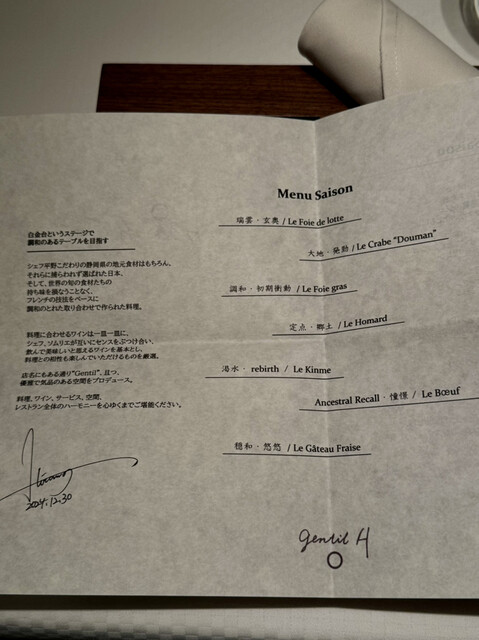 Menu Saison
白金台というステージで
調和のあるテーブルを目指す
シェフ平野こだわりの静岡県の地元食材はもちろん、
それらに捕らわれず選ばれた日本、
そして、世界の旬の食材たちの
持ち味を損なうことなく、
フレンチの技法をベースに
調和のとれた取り合わせで作られた料理。
料理に合わせるワインは一皿一皿に、
シェフ、ソムリエが互いにセンスをぶつけ合い、
飲んで美味しいと思えるワインを基本とし、
料理との相性も楽しんでいただけるものを厳選。
店名にもある通り"Gentil"、且つ、
優雅で気品のある空間をプロデュース。
料理、ワイン、サービス、空間、
レストラン全体のハーモニーを心ゆくまでご堪能ください。
2024.12.30
瑞雲・玄奥 / Le Foie de lotte
大地・発勁 / Le Crabe "Douman"
調和・初期衝動 / Le Foie gras
定点・郷土 / Le Homard
渇水・rebirth / Le Kinme
Ancestral Recall・憧憬 / Le Bœuf
穏和・悠悠 / Le Gâteau Fraise
gentil H